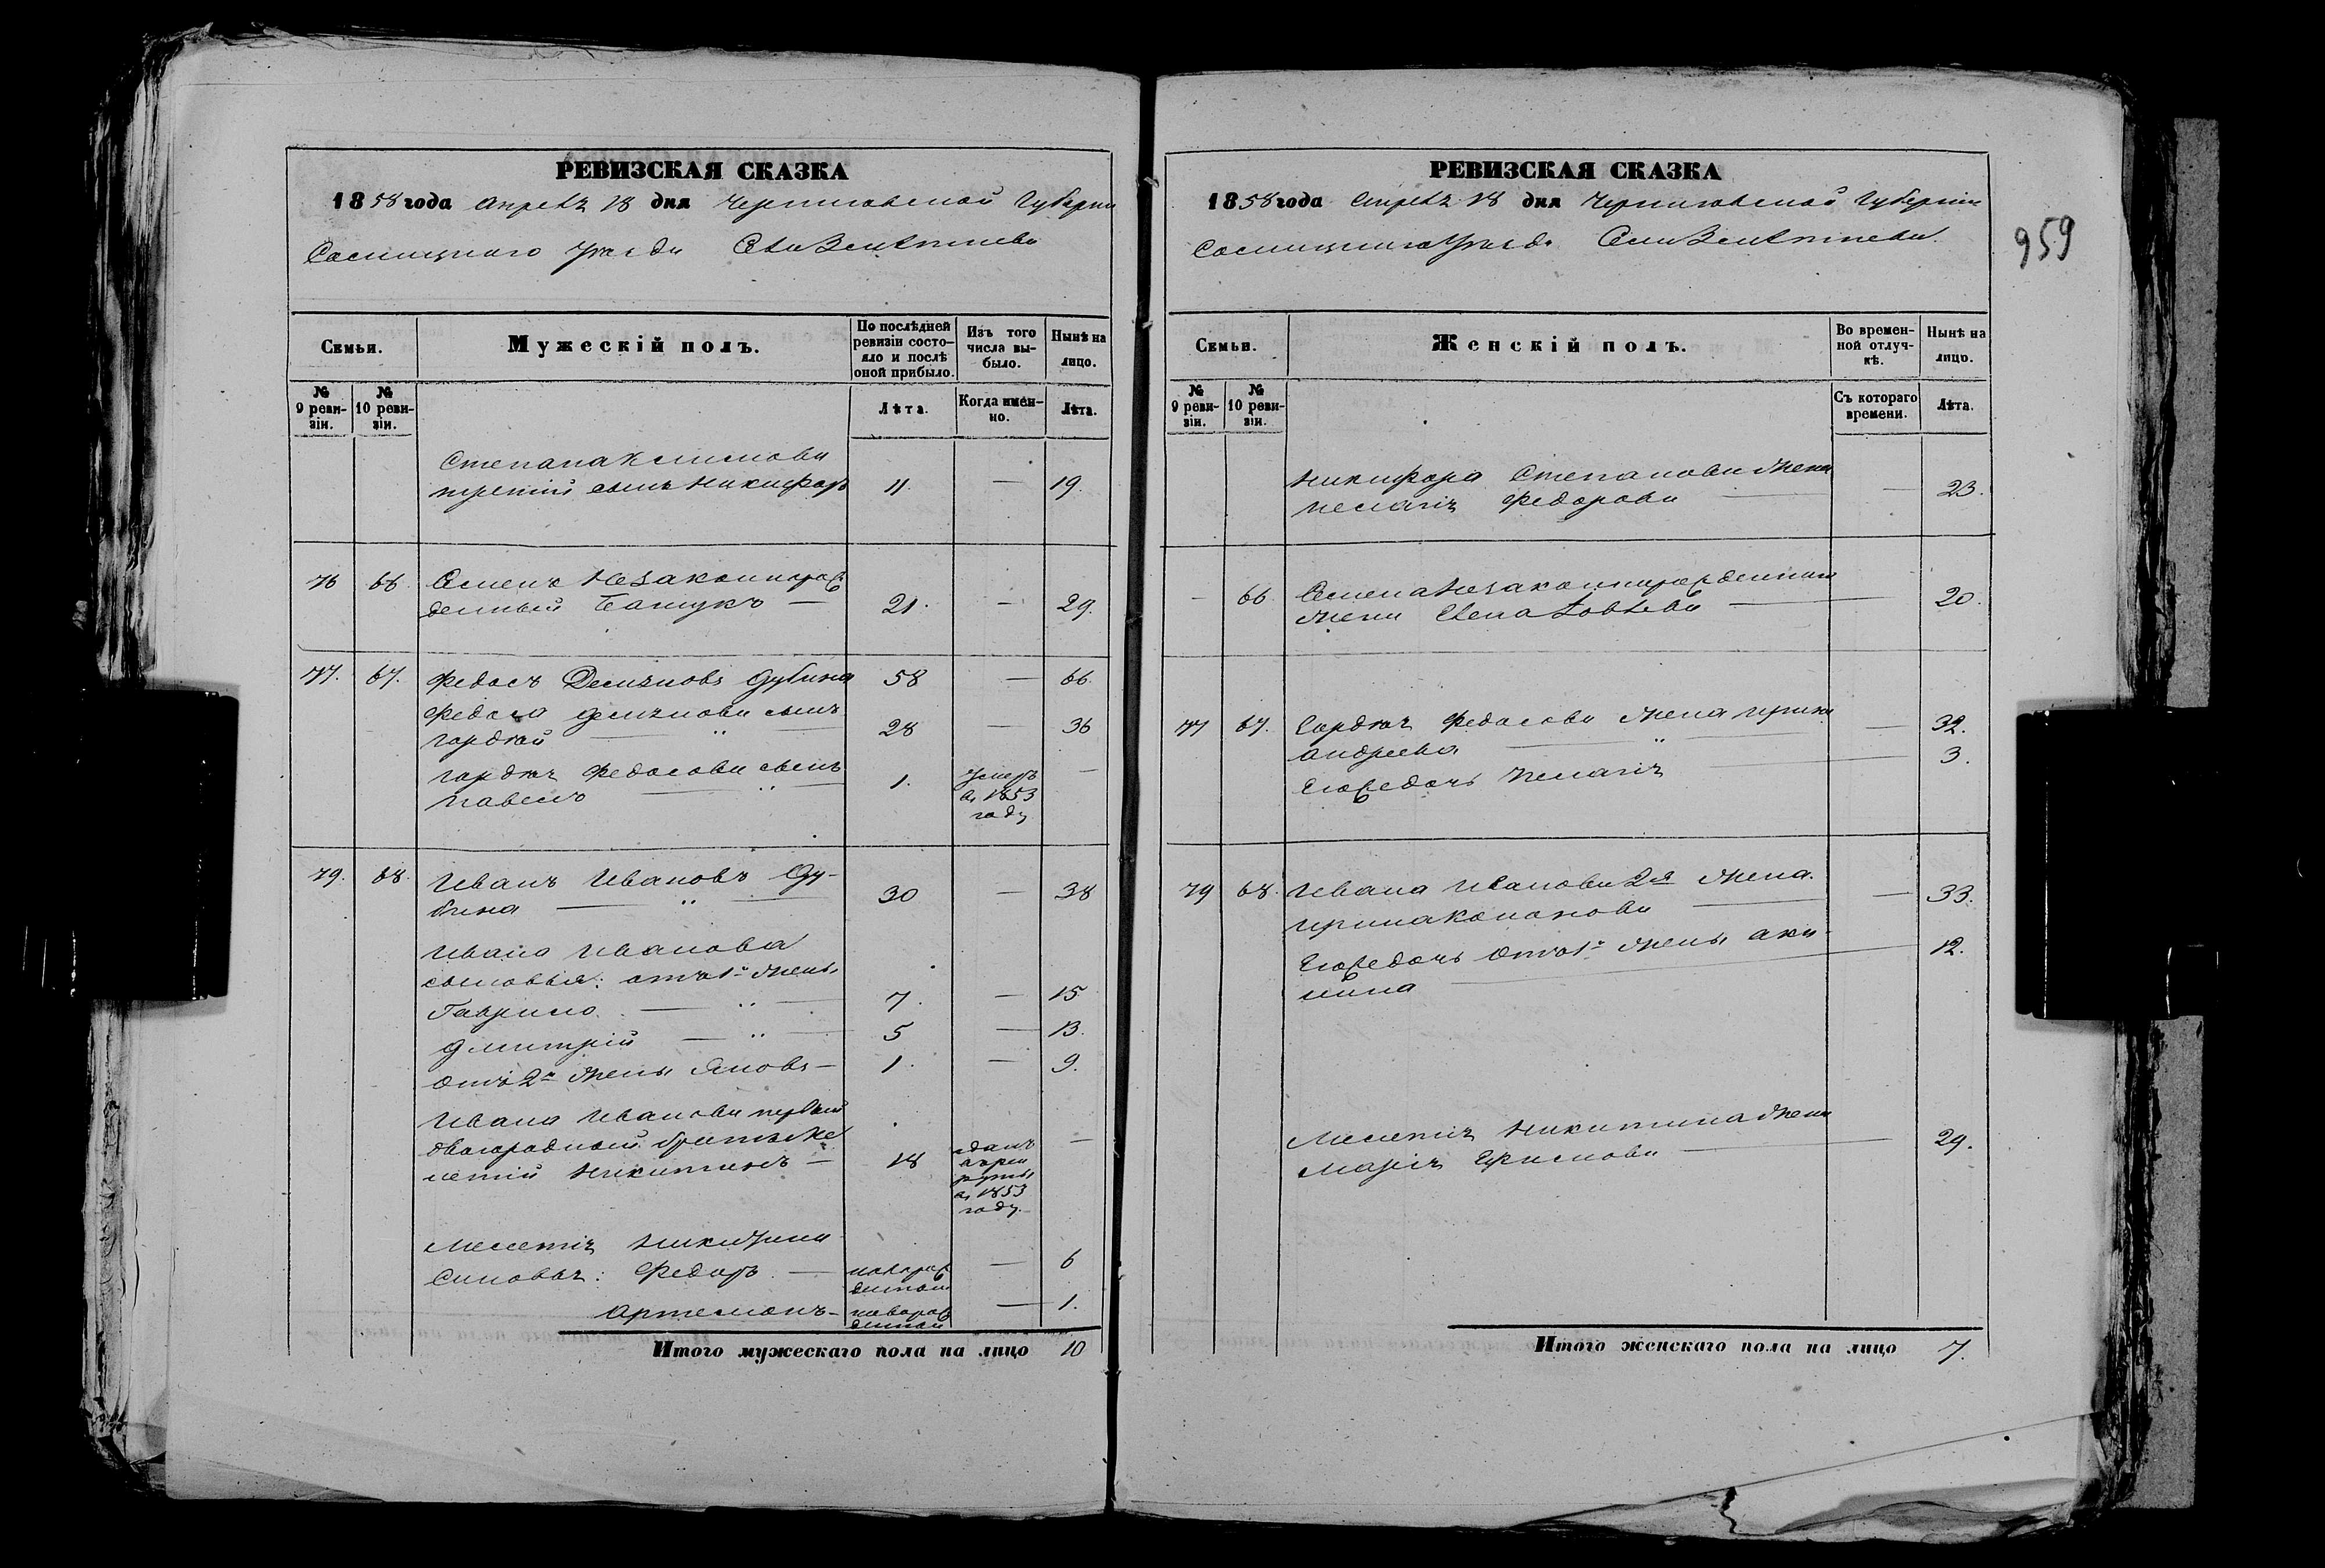 РЕВИЗСКАЯ СКАЗКА
1858 года Апреля 18 дня Черниговской Губерніи
Сосницкого Уезда Села
Семьи.
Мужескій полъ.
По послѣдней ревизіи состояло и послѣ оной прибыло.
Изъ того числа выбыло.
Нынѣ на лицо.
№ 9 ревизіи.
№ 10 ревизіи.
Лѣта.
Когда именно.
Лѣта.
Степана Климова
третій сынъ Никифоръ 11. — 19.
76 66 Семенъ Незаконнорож
денный 21. — 29.
77. 67. Федосъ Демяновъ Дубина 58 — 66.
Федоса Демянова сынъ
Гордѣй — " — 28 — 36
Гордѣя Федосова сынъ
Павелъ — " — 1. Умеръ въ 1853 году —
79. 68. Иванъ Ивановъ Ду-
бина — " — 30 — 38
Ивана Иванова
сыновья: отъ 1й жены
Гаврило — " — 7. — 15
Дмитрій — " — 5 — 13.
Отъ 2й жены Яковъ — 1. — 9.
Ивана Иванова первый
двоюродный братъ Ме
летій Никитинъ — 18 зданъ в рекруты въ 1853 году —
Мелетія Никитина
Синовья: Федоръ — новорожденный — 6
Артемонъ — новорожденный — 1.
Итого мужескаго пола на лицо 10
РЕВИЗСКАЯ СКАЗКА
1858 года Апреля 18 дня Черниговской Губерніи
Сосницкого Уезда Села
959
Семьи.
Женскій полъ.
Во временной отлучкѣ.
Нынѣ на лицо.
№ 9 ревизіи.
№ 10 ревизіи.
Съ котораго времени.
Лѣта.
Никифора Степанова жена
Пелагія Федорова — — 23.
— 66 Семена Незаконнорожденнаго
жена Елена — 20.
77 67. Гордѣя Федосова жена Ирина — 32.
Андреева — " —
Егожедочь Пелагія — 3.
79 68. Ивана Иванова 2я жена
Ирина Кононова — — 33.
Егожедочь отъ 1й жены Аку-
лина — 12.
Мелетія Никитина жена
Марія — 29.
Итого женскаго пола на лицо 7.